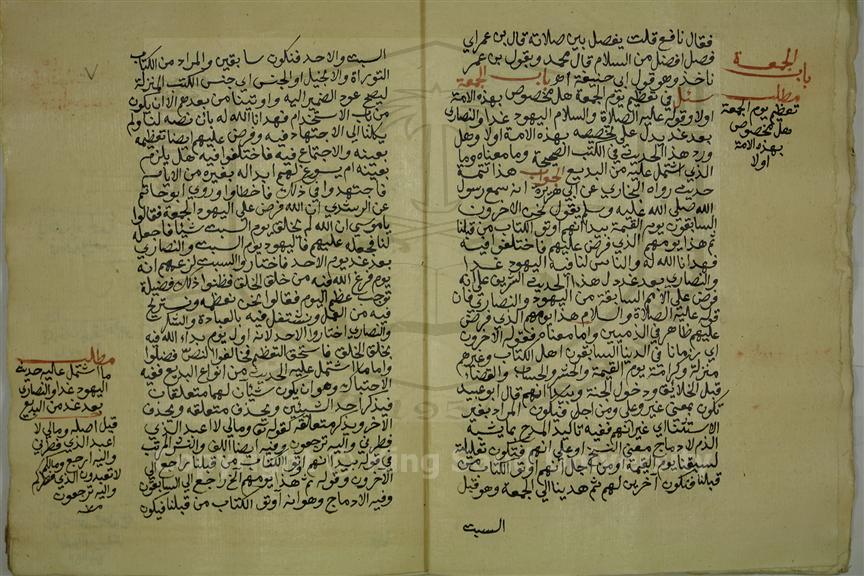 فقال نافع قلت يفصل بين صلاته قال بن عمر اي
فصل افضل من السلام قال محمد وبقول بن عمر
ناخذ وهو قول ابي حنيفة اهـ باب الجمعة
سئل في تعظيم يوم الجمعة هل مخصوص بهذه الامة
اولا وقوله عليه الصلاة والسلام اليهود غدا والنصارى
بعد غد يدل على تخصيصه بهذه الامة اولا وهل
ورد هذا الحديث في الكتب الصحيحة وما معناه وما
الذي اشتمل عليه من البديع الجواب هذا تتمة
حديث رواه البخاري عن ابي هريرة انه سمع رسول
الله صلى الله عليه وسلم يقول نحن الاخرون
السابقون يوم القيمة بيد انهم اوتوا الكتاب من قبلنا
ثم هذا يومهم الذي فرض عليهم فاختلفوا فيه
فهدانا الله له والناس لنا فيه اليهود غدا
والنصارى بعد غد دل هذا الحديث الشريف على انه
فرض على الامم السابقة من اليهود والنصارى فان
قوله عليه الصلاة والسلام هذا يومهم الذي فرض
عليهم ظاهر في الذميين واما معناه فقوله الاخرون
اي زمانا في الدنيا السابقون اهل الكتاب وغيرهم
منزلة وكرامة يوم القيمة والجنة والحساب والقضاء
قبل الخلائق ودخول الجنة وبيد انهم قال ابو عبيد
تكون بمعنى غير وعلى ومن اجل فتكون المراد بغير
الاستثناء اي غير انهم ففيه تاكيد المدح بما يشبه
الذم لادماج معنى النسخ او على انهم فتكون تعليلة
لسبقنا يوم القيمة ومن اجل انهم اوتوا الكتاب من
قبلنا فتكون اخرين لهم ثم هدينا الى الجمعة وهو قبل
السبت
الجمعة
باب
مطلب
تعظيم يوم الجمعة
هل مخصوص
بهذه الامة
اولا
السبت والاحد فنكون سابقين والمراد من الكتاب
التوراة والانجيل او الجنس اي جنس الكتب المنزلة
ليصح عود الضمير اليه واوتينا من بعدهم الا ان يكون
من باب الاستخدام فهدانا الله له بان نصه لنا ولم
يكلنا الى الاجتهاد فيه وفرض عليهم ايضا تعظيمه
بعينه والاجتماع فيه فاختلفوا فيه هل يلزم
بعينه ام يسوغ لهم ابداله بغيره من الايام
فاجتهدوا في ذلك فاخطاوا وروى ابو حاتم
عن السدي ان الله فرض على اليهود الجمعة فقالوا
يا موسى ان الله لم يخلق يوم السبت شيئا فاجعله
لنا فجعله عليهم فاليهود يوم السبت والنصارى
بعد غد يوم الاحد فاختاروا السبت لزعمهم انه
يوم فرغ الله فيه من خلق الخلق فظنوا ذلك فضيلة
توجب عظم اليوم فقالوا نحن نعظمه ونستريح
فيه من العمل ونشتغل فيه بالعبادة والشكر
والنصارى اختاروا الاحد لانه اول يوم بدا الله فيه
بخلق الخلق فاستحق التعظيم فخالفوا النص فضلوا
واما ما اشتمل عليه الحديث من انواع البديع ففيه
الاحتباك وهو ان يكون شيئان لهما متعلقات
فيذكر احد الشيئين ويحذف متعلقه ويحذف
الاخر ويذكر متعلقه كقوله تعالى ومالي لا اعبد الذي
فطرني واليه ترجعون وفيه ايضا اللف والنشر المرتب
في قوله بيد انهم اوتوا الكتاب من قبلنا راجع الى
الاخرون وقوله ثم هذا يومهم الخ راجع الى السابقون
وفيه الادماج وهو انه اوتوا الكتاب من قبلنا فيكون
مطلب
ما اشتمل عليه حديث
اليهود غدا والنصارى
بعد غد من البديع
قبل اصله ومالي لا
اعبد الذي فطرني
واليه ارجع ومالكم
لا تعبدون الذي فطركم
واليه ترجعون